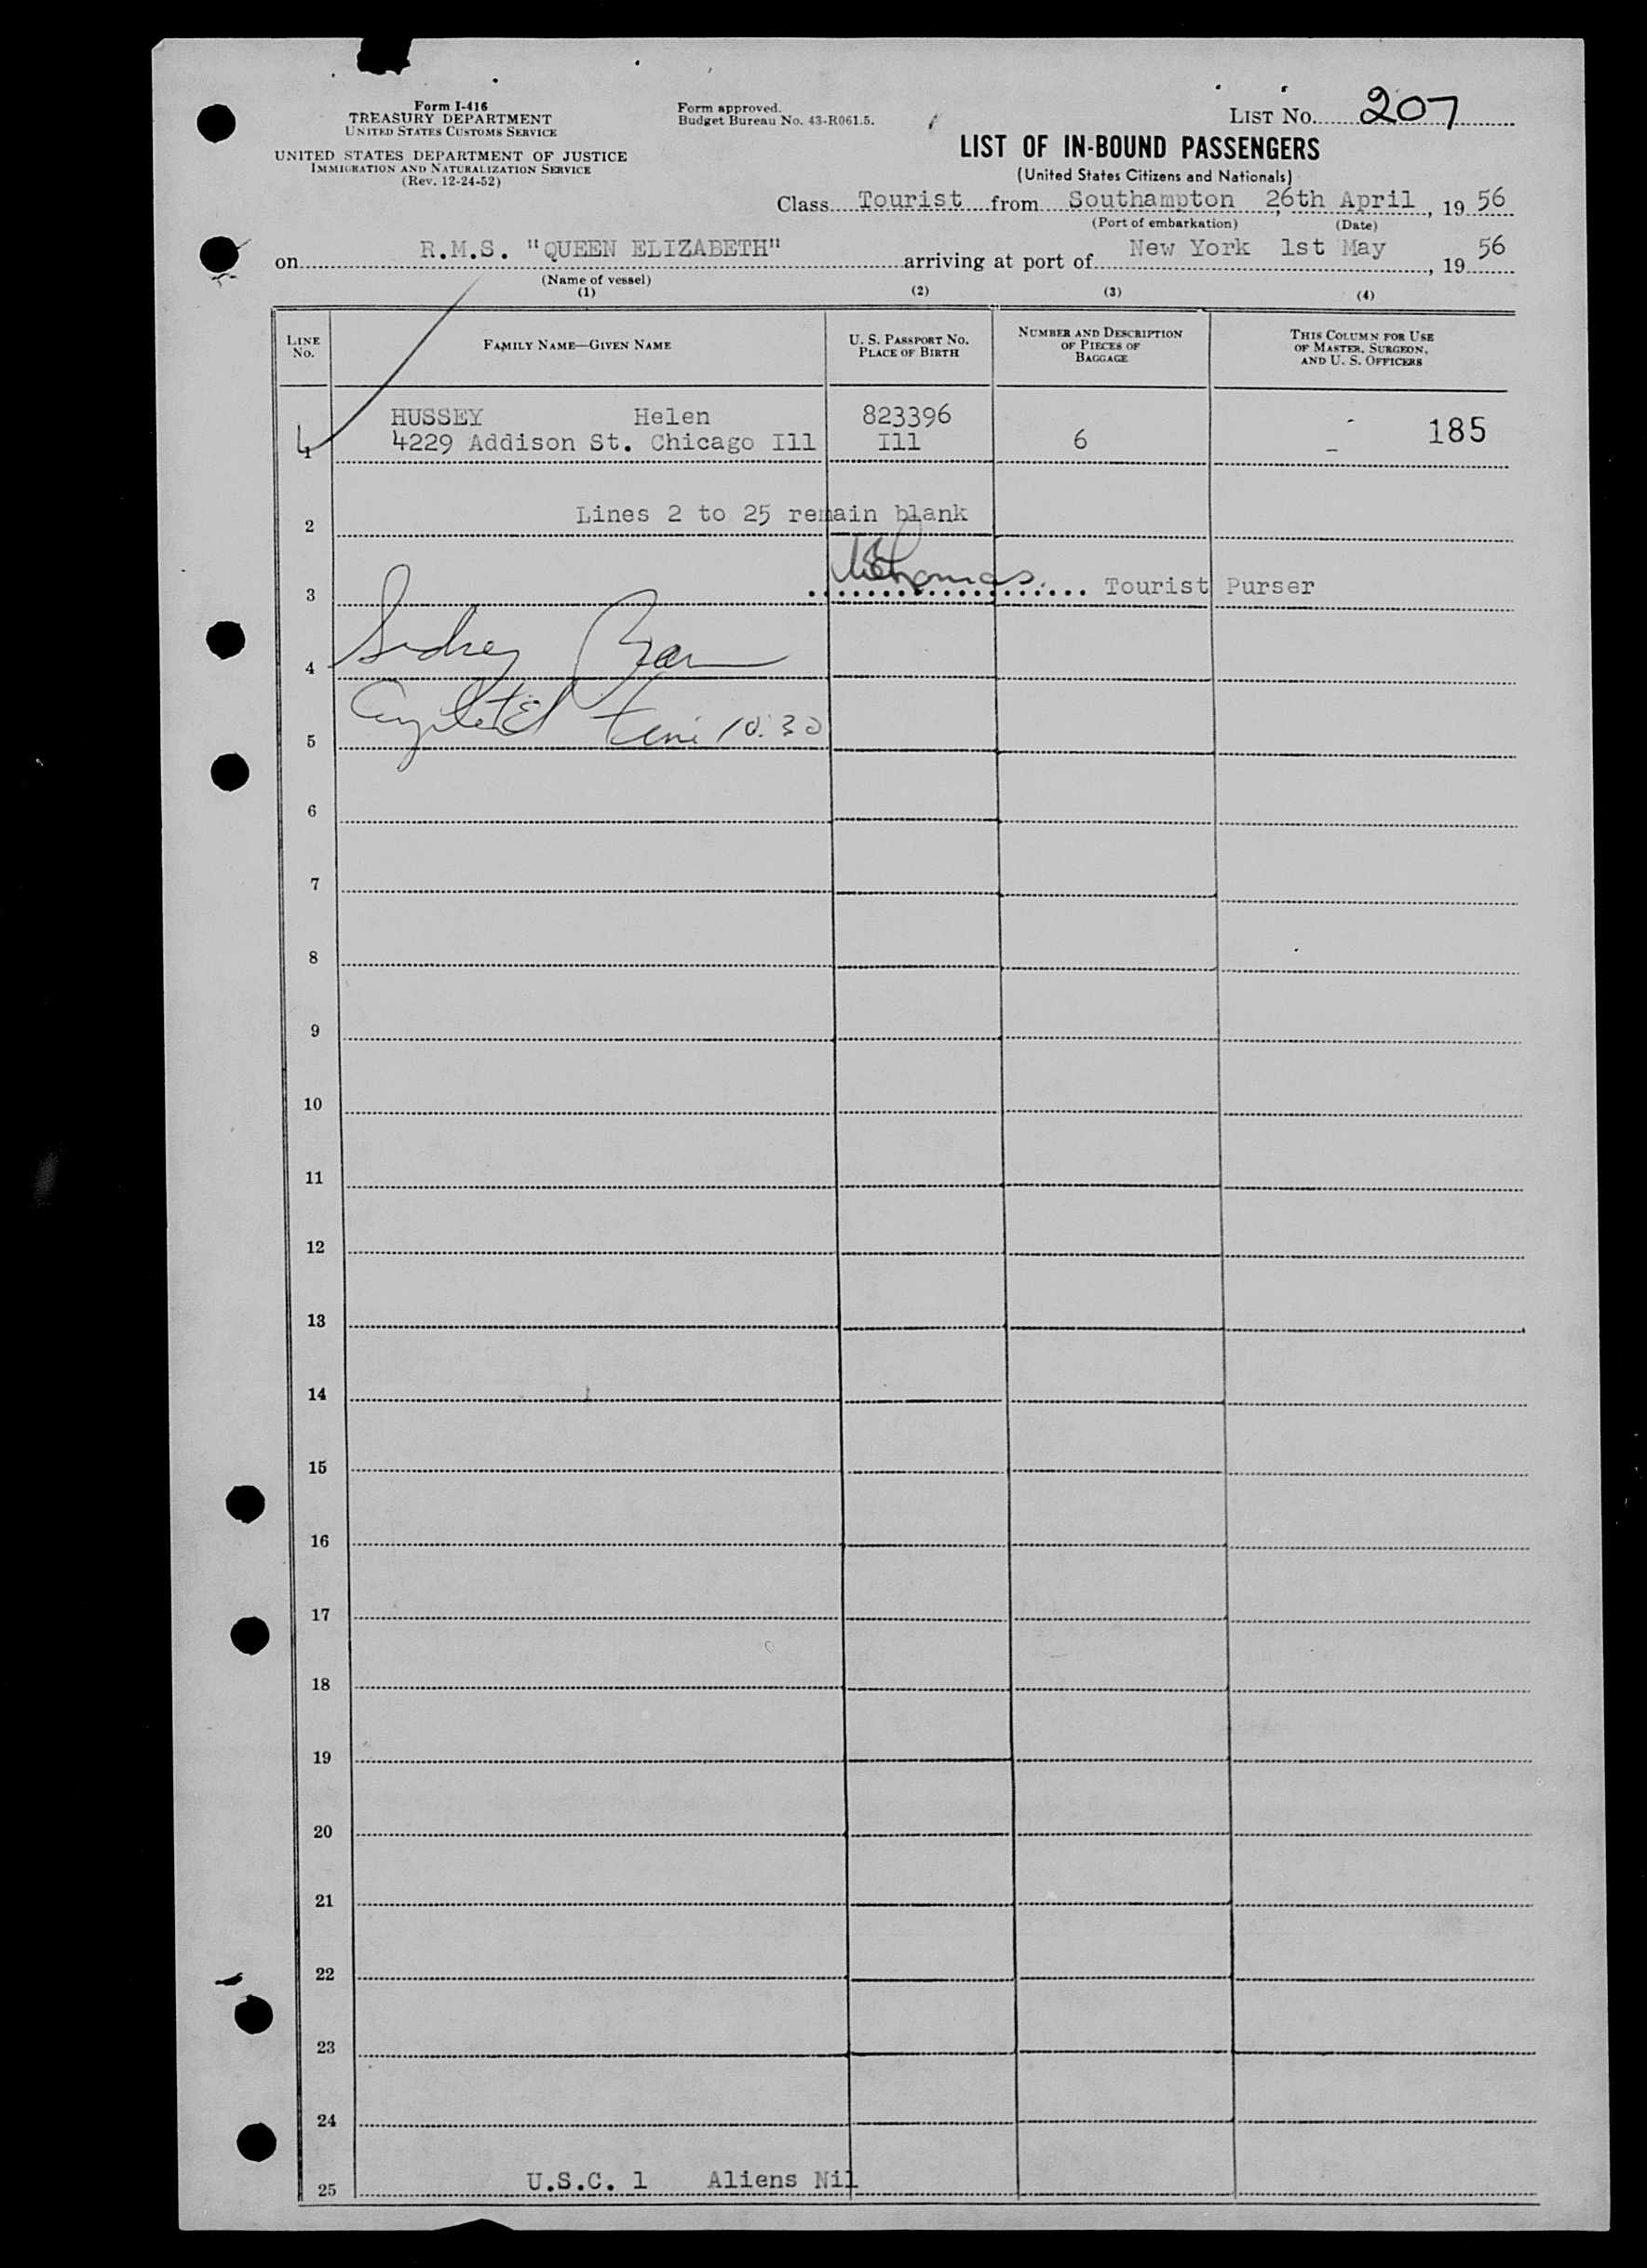 Form I-416
TREASURY DEPARTMENT
UNITED STATES CUSTOMS SERVICE
UNITED STATES DEPARTMENT OF JUSTICE
IMMIGRATION AND NATURALIZATION SERVICE
(Rev. 12-24-52)
Form approved.
Budget Bureau No. 43-R061.5.
LIST No. 207
LIST OF IN-BOUND PASSENGERS
(United States Citizens and Nationals)
Class Tourist from Southampton 26th April, 19 56
(Port of embarkation) (Date)
on R.M.S. "QUEEN ELIZABETH" arriving at port of New York 1st May, 19 56
(Name of vessel)
(1) (2) (3) (4)
LINE No. FAMILY NAME—GIVEN NAME U. S. PASSPORT No. PLACE OF BIRTH NUMBER AND DESCRIPTION OF PIECES OF BAGGAGE THIS COLUMN FOR USE OF MASTER, SURGEON, AND U. S. OFFICERS
HUSSEY Helen 823396
1 4229 Addison St. Chicago Ill Ill 6 - 185
2 Lines 2 to 25 remain blank
3 Tourist Purser
4 Sidney
5 time 10:30
6
7
8
9
10
11
12
13
14
15
16
17
18
19
20
21
22
23
24
25 U.S.C. 1 Aliens Nil